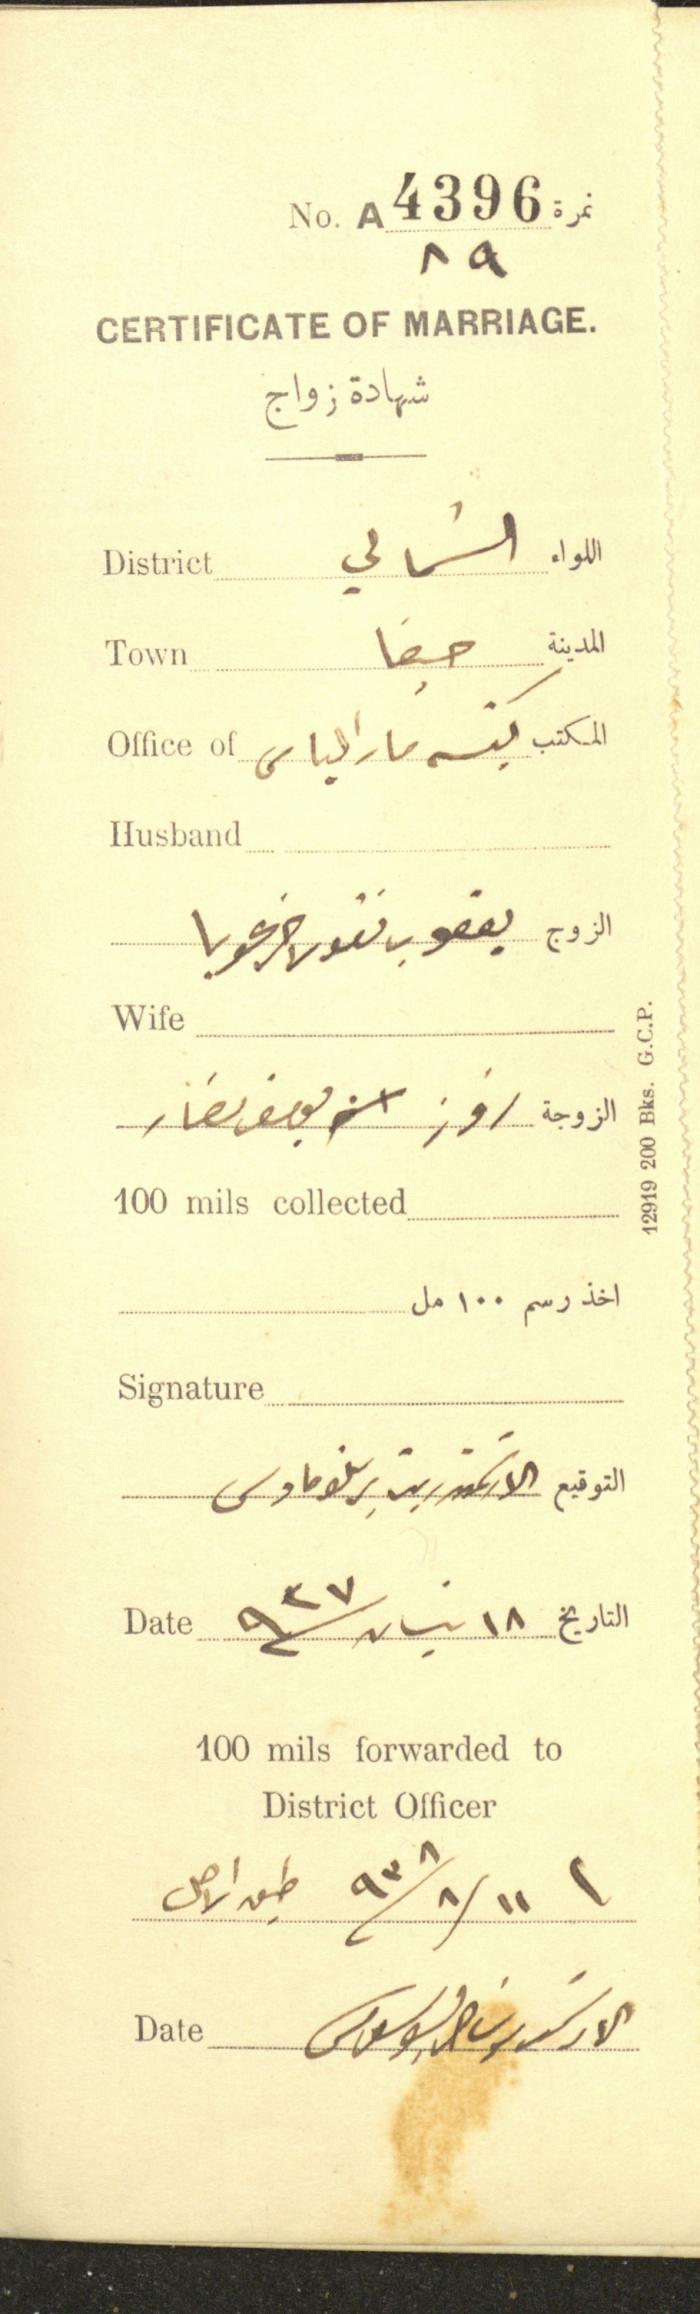 No. A 4396 نمرة
٨٩
CERTIFICATE OF MARRIAGE.
شهادة زواج
District الشمالي اللواء
Town حيفا المدينة
Office of كنيسة مار الياس المكتب
Husband
الزوج يعقوب نقولا
Wife
الزوجة روز يوسف نصار
100 mils collected
اخذ رسم ١٠٠ مل
Signature
التوقيع الارشمندريت
Date ١٨ نيسان ٩٣٧ التاريخ
100 mils forwarded to
District Officer
١١/٨/٩٣٨ طبق الاصل
Date
12919 200 Bks. G.C.P.